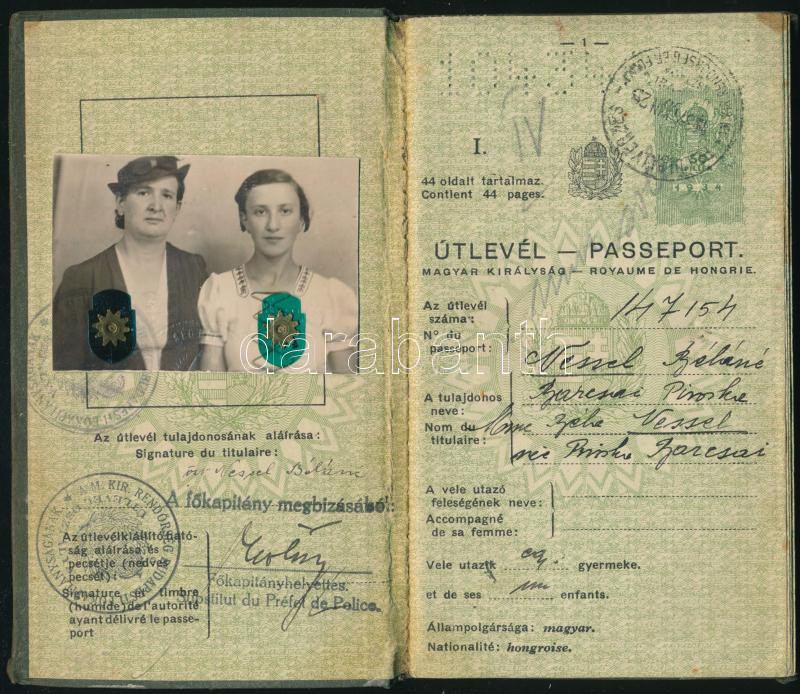 Az útlevél tulajdonosának aláírása:
Signature du titulaire:
özv Nessel Béláné
A főkapitány megbízásából:
Az útlevélkiállító ható-
ság aláírása és
pecsétje (nedves
pecsét):
Signature et timbre
(humide) de l'autorité
ayant délivré le passe-
port
Főkapitányhelyettes.
Substitut du Préfet de Police.
— 1 —
I.
IV
44 oldalt tartalmaz.
Contient 44 pages.
1934
ÚTLEVÉL — PASSEPORT.
MAGYAR KIRÁLYSÁG — ROYAUME DE HONGRIE.
Az útlevél
száma:
N° du
passeport:
147154
A tulajdonos
neve:
Nom du
titulaire:
Nessel Béláné
Barcsai Piroska
Mme Béla Nessel
née Piroska Barcsai
A vele utazó
feleségének neve:
Accompagné
de sa femme:
Vele utazik egy gyermeke.
et de ses un enfants.
Állampolgársága: magyar.
Nationalité: hongroise.
darabanth